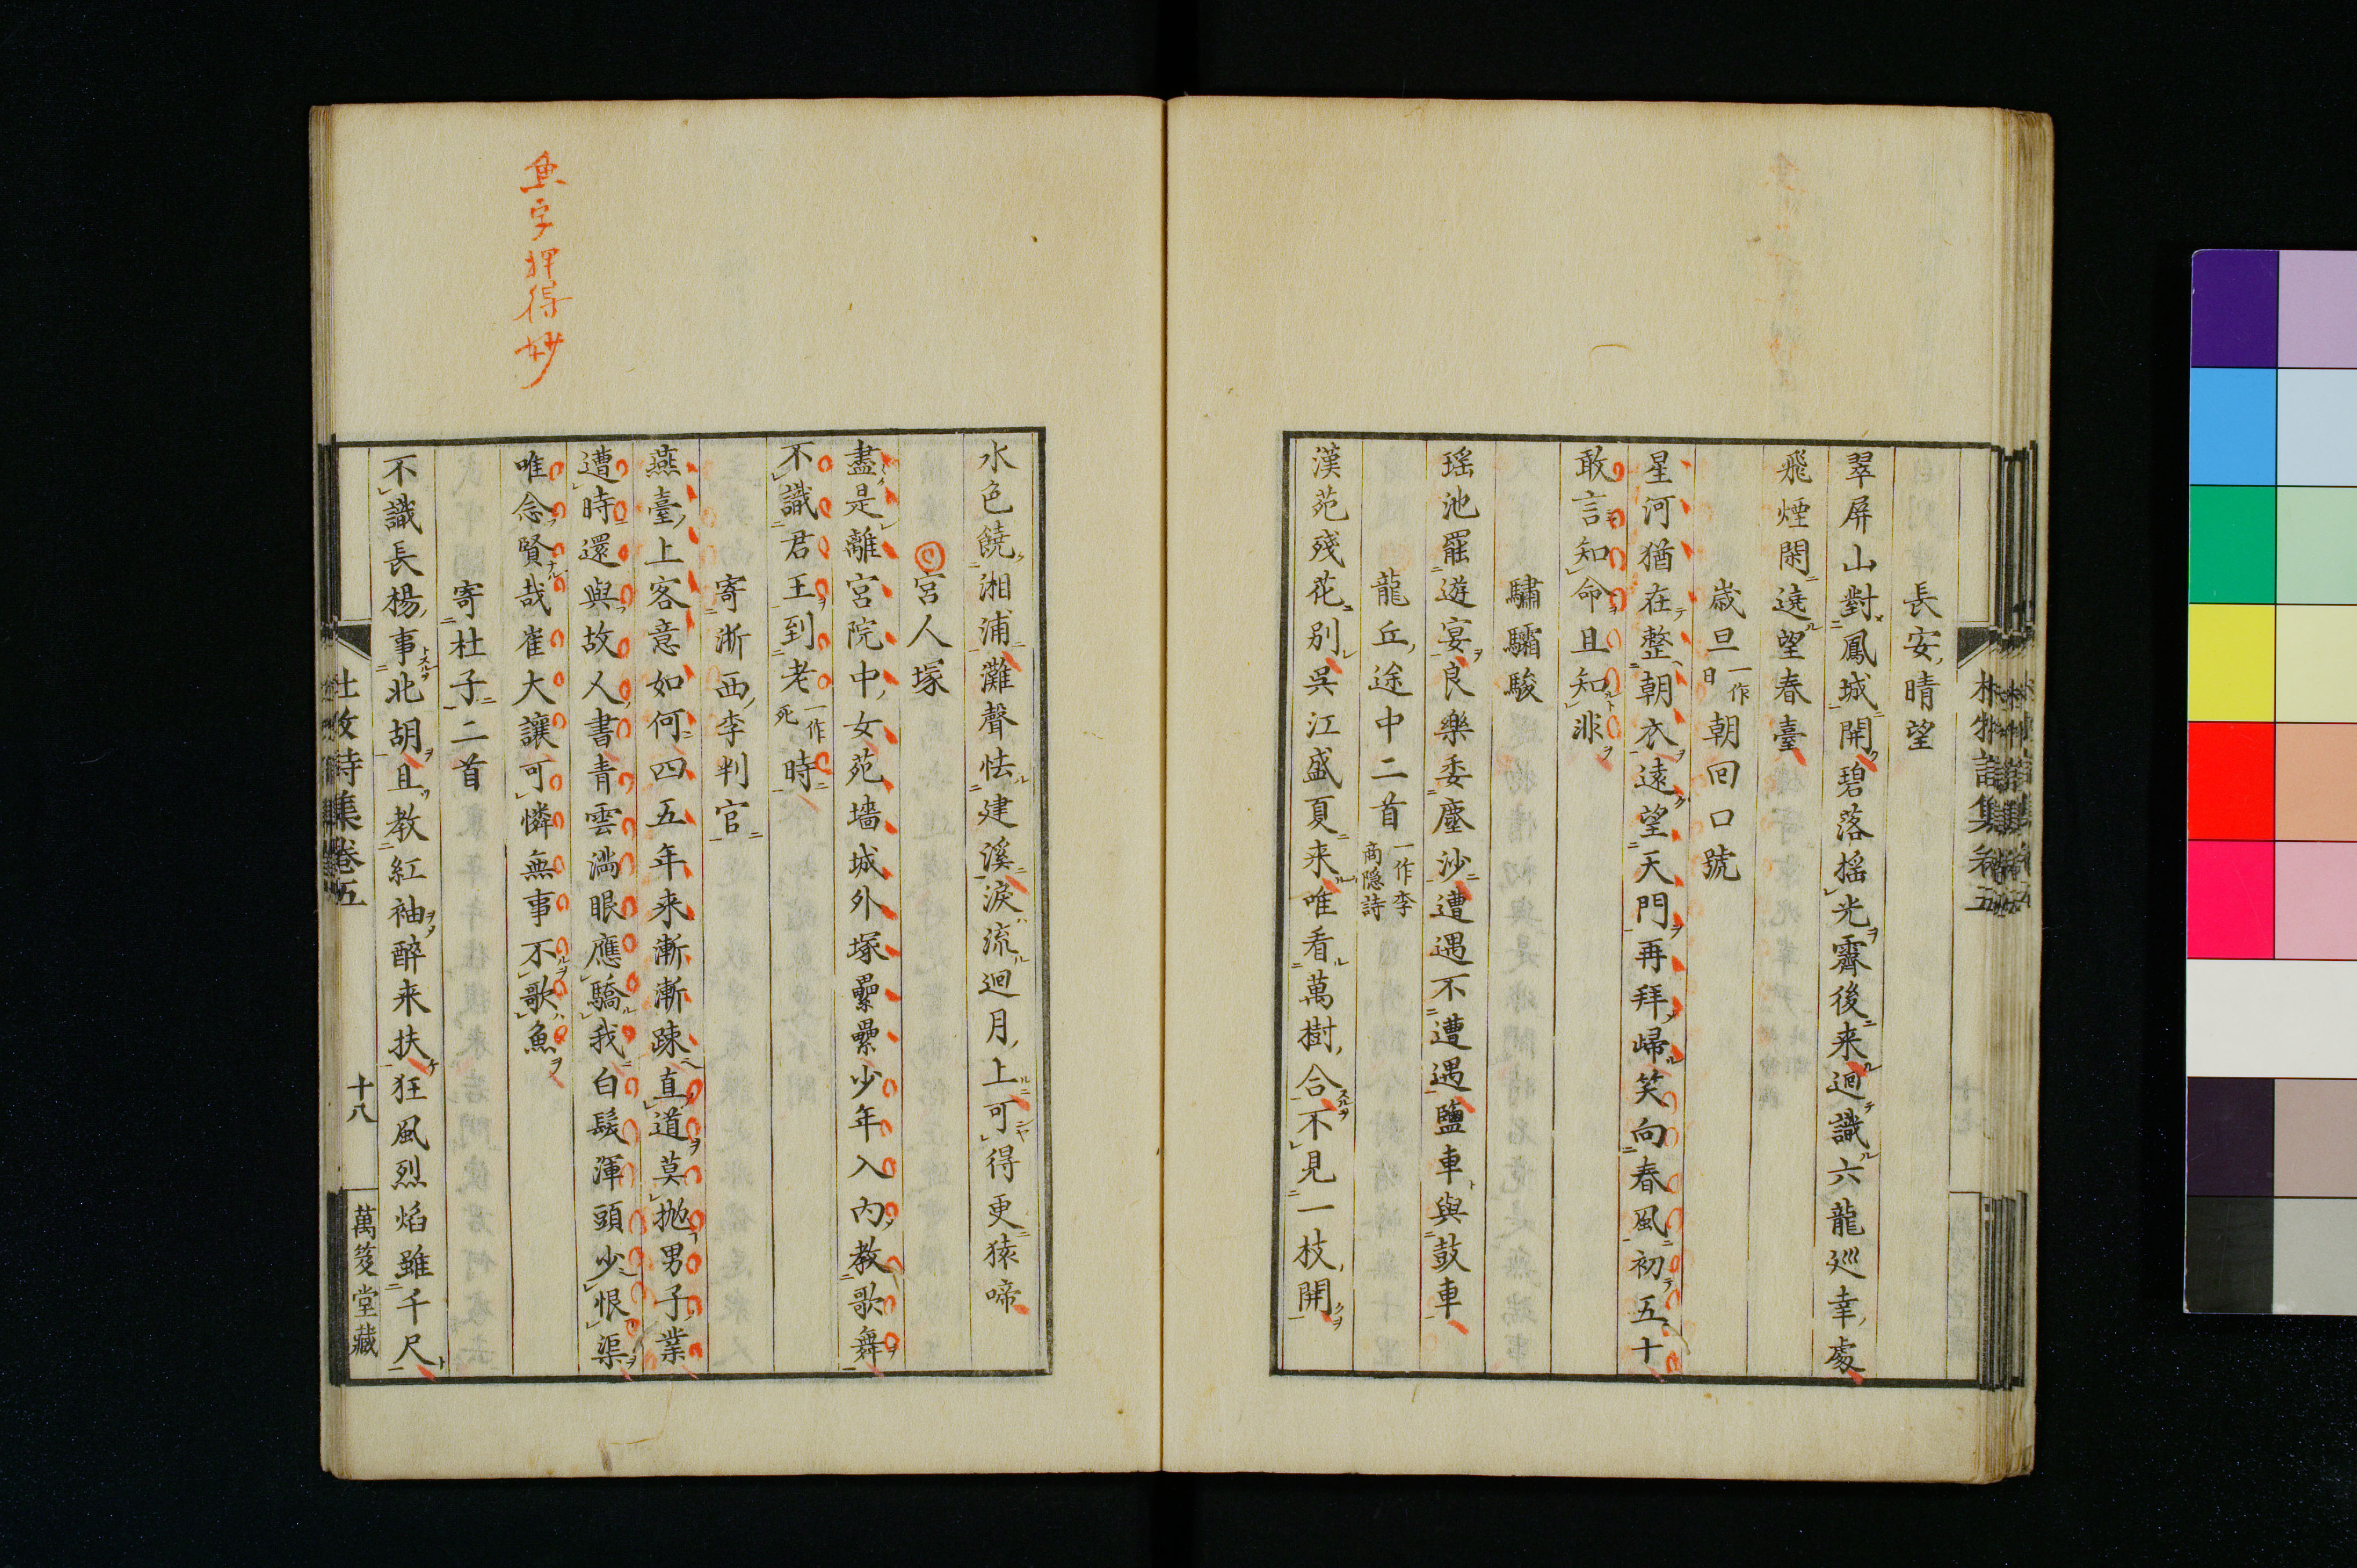 長安晴望
翠屏山對鳳城開碧落揺光霽後来迴識六龍巡幸處
飛煙閑遶望春臺
歳旦一作日朝回口號
星河猶在整朝衣遠望天門再拜歸笑向春風初五十
敢言知命且知非
驌驦駿
瑶池罷遊宴良樂委塵沙遭遇不遭遇鹽車與鼓車
龍丘途中二首一作李商隠詩
漢苑殘花别吳江盛夏来唯看萬樹合不見一枝開
水色饒湘浦灘聲怯建溪淚流迴月上可得更猿啼
宮人塚
盡是離宮院中女苑墻城外塚纍纍少年入內教歌舞
不識君王到老一作死時
寄浙西李判官
燕臺上客意如何四五年来漸漸踈直道莫抛男子業
遭時還與故人書青雲満眼應驕我白髮渾頭少恨渠
唯念賢哉崔大讓可憐無事不歌魚
寄杜子二首
不識長楊事北胡且教紅袖醉来扶狂風烈焰雖千尺
杜牧詩集卷五
十八
萬笈堂藏
魚字押得妙